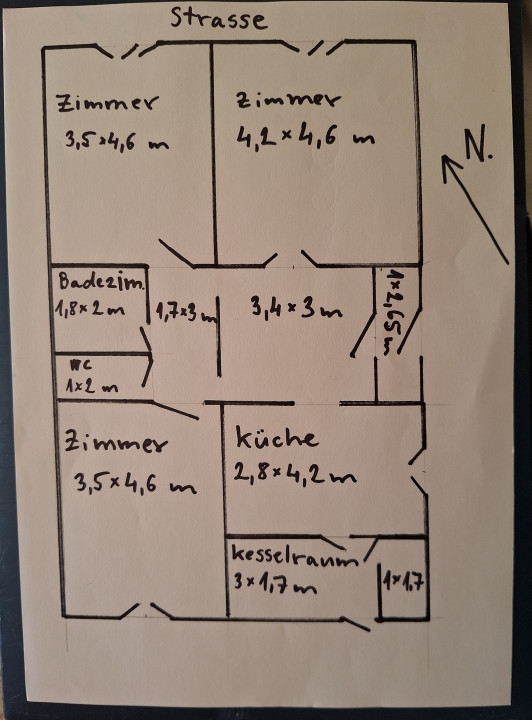 Strasse
Zimmer
3,5 x 4,6 m
Zimmer
4,2 x 4,6 m
N.
Badezim.
1,8 x 2 m
1,7 x 3 m
3,4 x 3 m
1 x 2,65 m
WC
1 x 2 m
Zimmer
3,5 x 4,6 m
Küche
2,8 x 4,2 m
Kesselraum
3 x 1,7 m
1 x 1,7